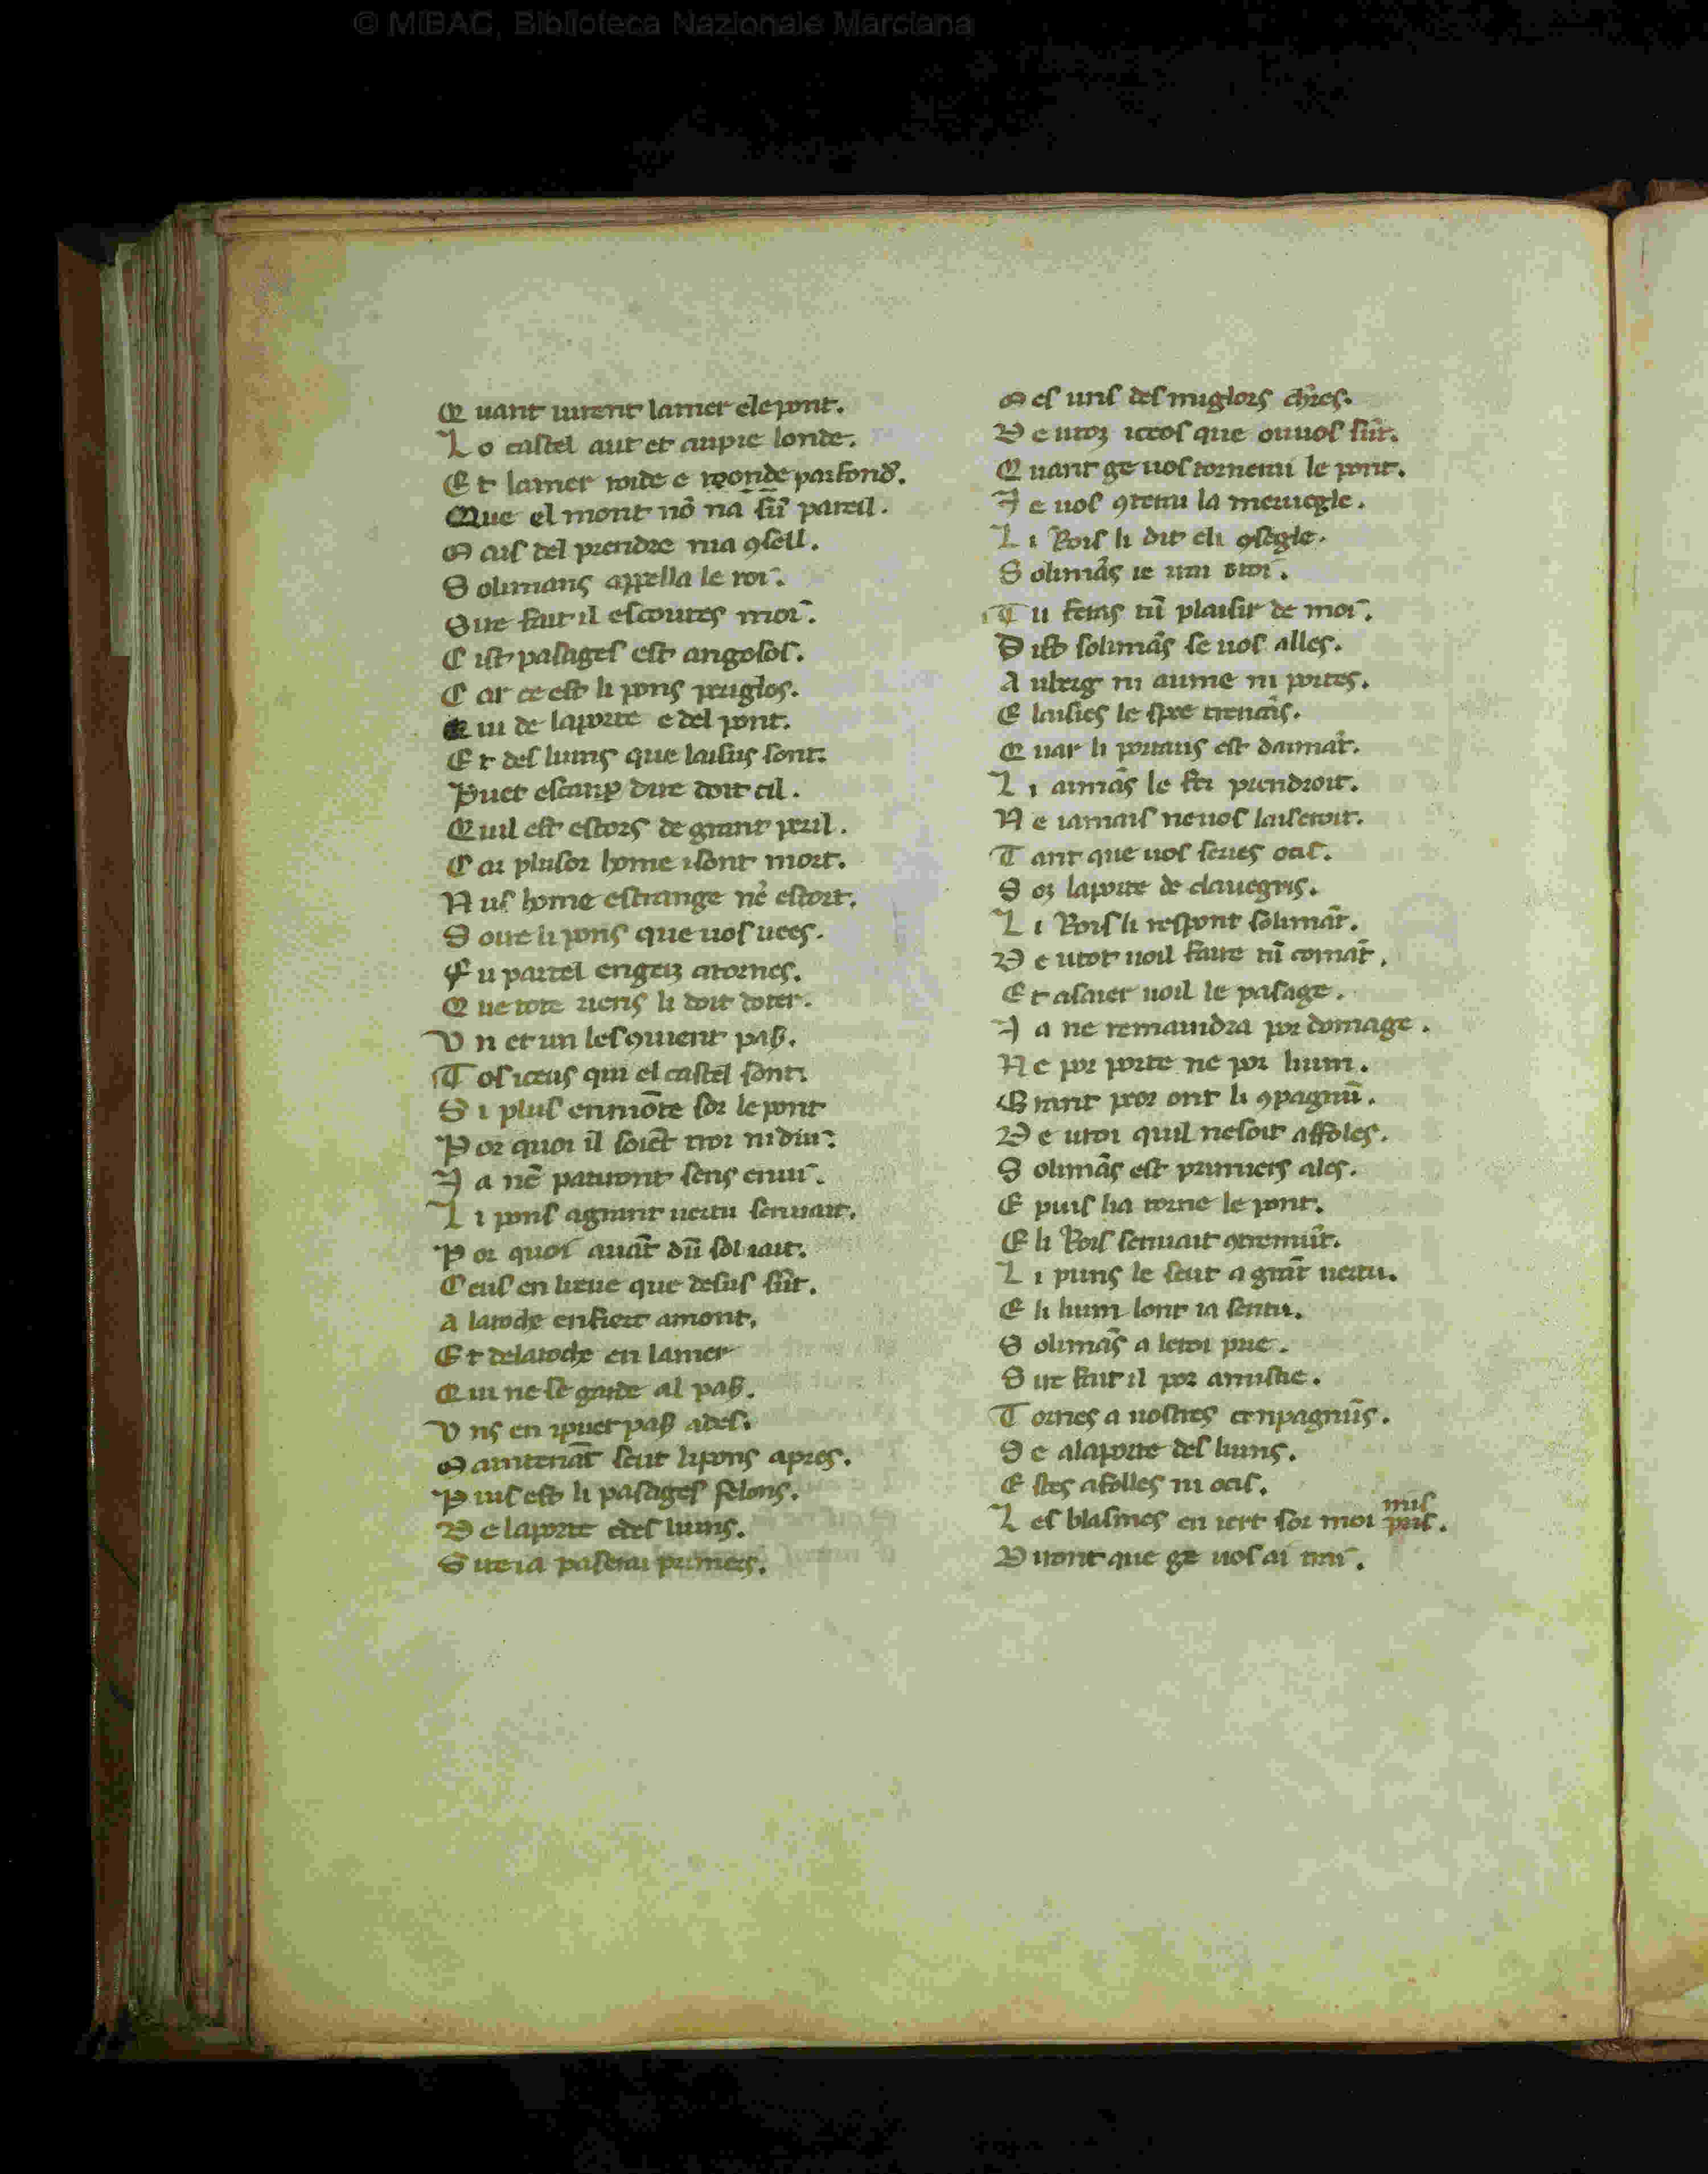 © MiBAC, Biblioteca Nazionale Marciana
Q uant uirent lamer elepont.
L o castel aut et aupie londe.
E t lamer roide e reonde parfond̾.
Que el mont nō nā sū pareil.
M ais del prendre nia ꝯsell.
S olimans appella le roi.
Sire fait il escoutes moi.
C ist pasages est angosos.
C ar ce est li pons periglos.
Q ui de laporte e del pont.
E t des luins que laisus sont.
Puet escanp̄ dire doit cil.
Q uil est estors de grant peril.
C ar plusor home isont mort.
N us home estrange nē estort.
S oue li pons que uos uees.
F u par tel engeig atornes.
Q ue tote riens li doit doter.
V n et un les ꝯuient paß.
T os iceus qui el castel sont.
S i plus enmōte sor le pont
P or quoi il soiēt troi ni dui.
J a nē partiront sens enui.
L i pons agrant uertu senuait.
P or quoi auāt dū sol iait.
C eus en lieue que desus sūt.
A laroche enfiert amont.
E t delaroche en lamer
Q ui ne se garde al paß.
V ns en ipuet paß ades.
M aintenāt seut lipons apres.
P uis est li pasages felons.
D e laporte edes luins.
S ire ia paserai primers.
M es uns des miglors chr̄es.
D e utoz iceos que ouuos sūt.
Q uant ge uos tornerai le pont.
J e uos ꝯterai la meruegle.
L i Rois li dit eli ꝯsegle.
S olimās ie uin otroi.
T u feras tū plaisir de moi.
D ist solimās se uos alles.
A uberg ni aume ni portes.
E laisies le spee trencās.
Q uar li portaus est daimāt.
L i aimās le fer prendroit.
N e iamais neuos laiseroit.
T ant que uos series ocis.
S oz laporte de clauegris.
L i Rois li respont solimāt.
D e utot uoil faire tū comāt.
E t asaier uoil le pasage.
J a ne remaindra por domage.
N e por porte ne por luin.
G rant peor ont li ꝯpagnū.
D e uroi quil nesoit affoles.
S olimās est primiers ales.
E puis lia torne le pont.
E li Rois senuait ꝯtremūt.
L i puns le seut a grāt uertu.
E li luin lont ia sentu.
S olimās a leroi prie.
S ire fait il por amistie.
T ornes a uostres cenpagnūs.
S e alaporte des luins.
E stes afolles ni ocis.
L es blasmes en iert sor moi pris. mis
D iront que ge uos ai trai.